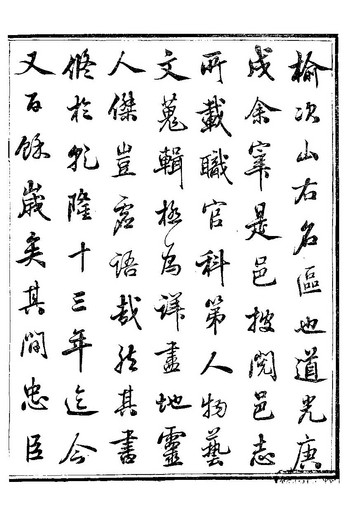 榆次山右名區也道光庚
戌余宰是邑披閱邑志
所載職官科第人物藝
文蒐輯極為詳盡地靈
人傑豈虛語哉然其書
脩於乾隆十三年迄今
又百餘歲矣其間忠臣